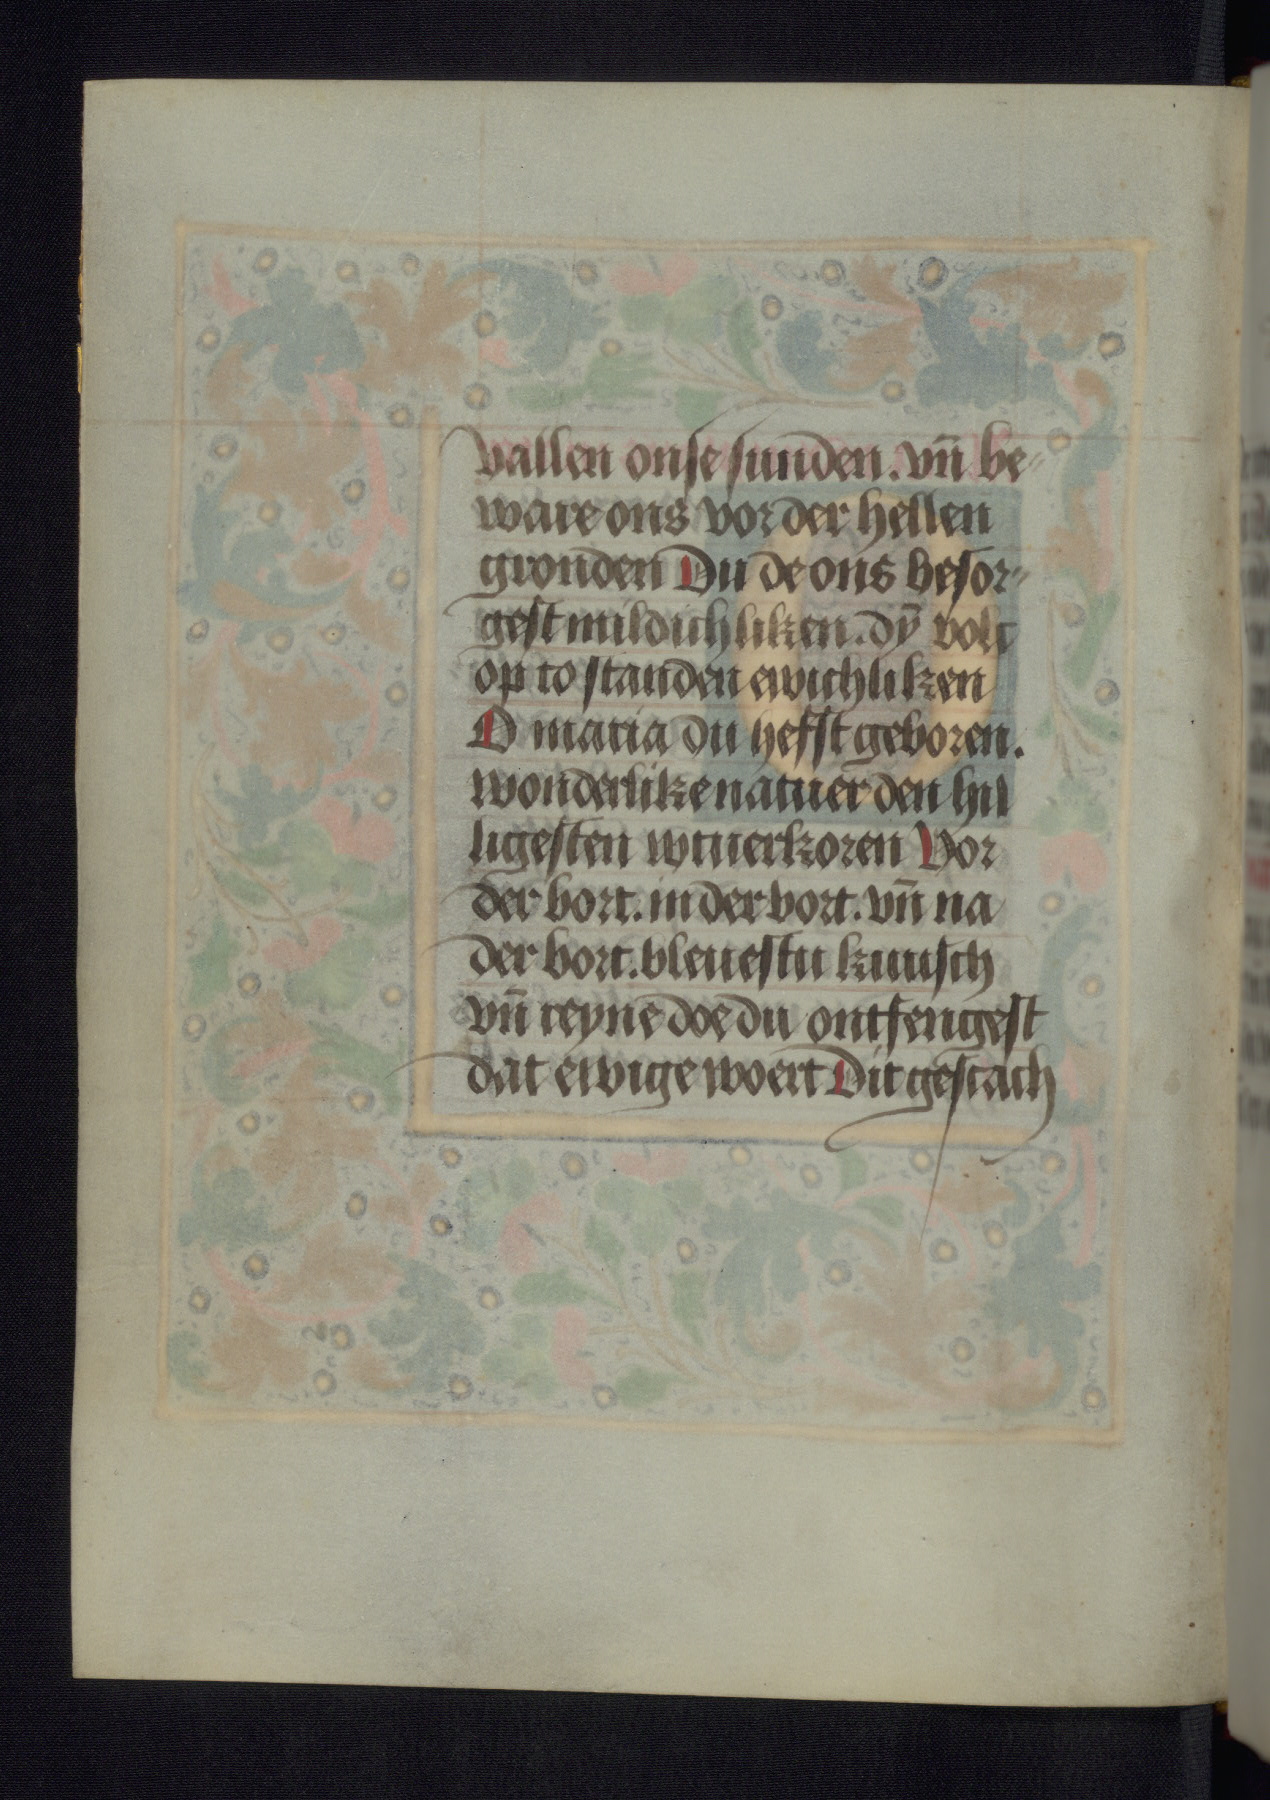 vallen onse sunden. vn̄ be-
ware ons vor der hellen
gronden Du de ons besor-
gest mildichliken. dȳ volc
op to standen ewichliken
O maria du hefst geboren.
wonderlike natuer den hil
ligesten wtuerkoren Vor
der bort. in der bort. vn̄ na
der bort. bleuestu kuusch
vn̄ reyne doe du ontfengest
dat ewige woert Dit geschach